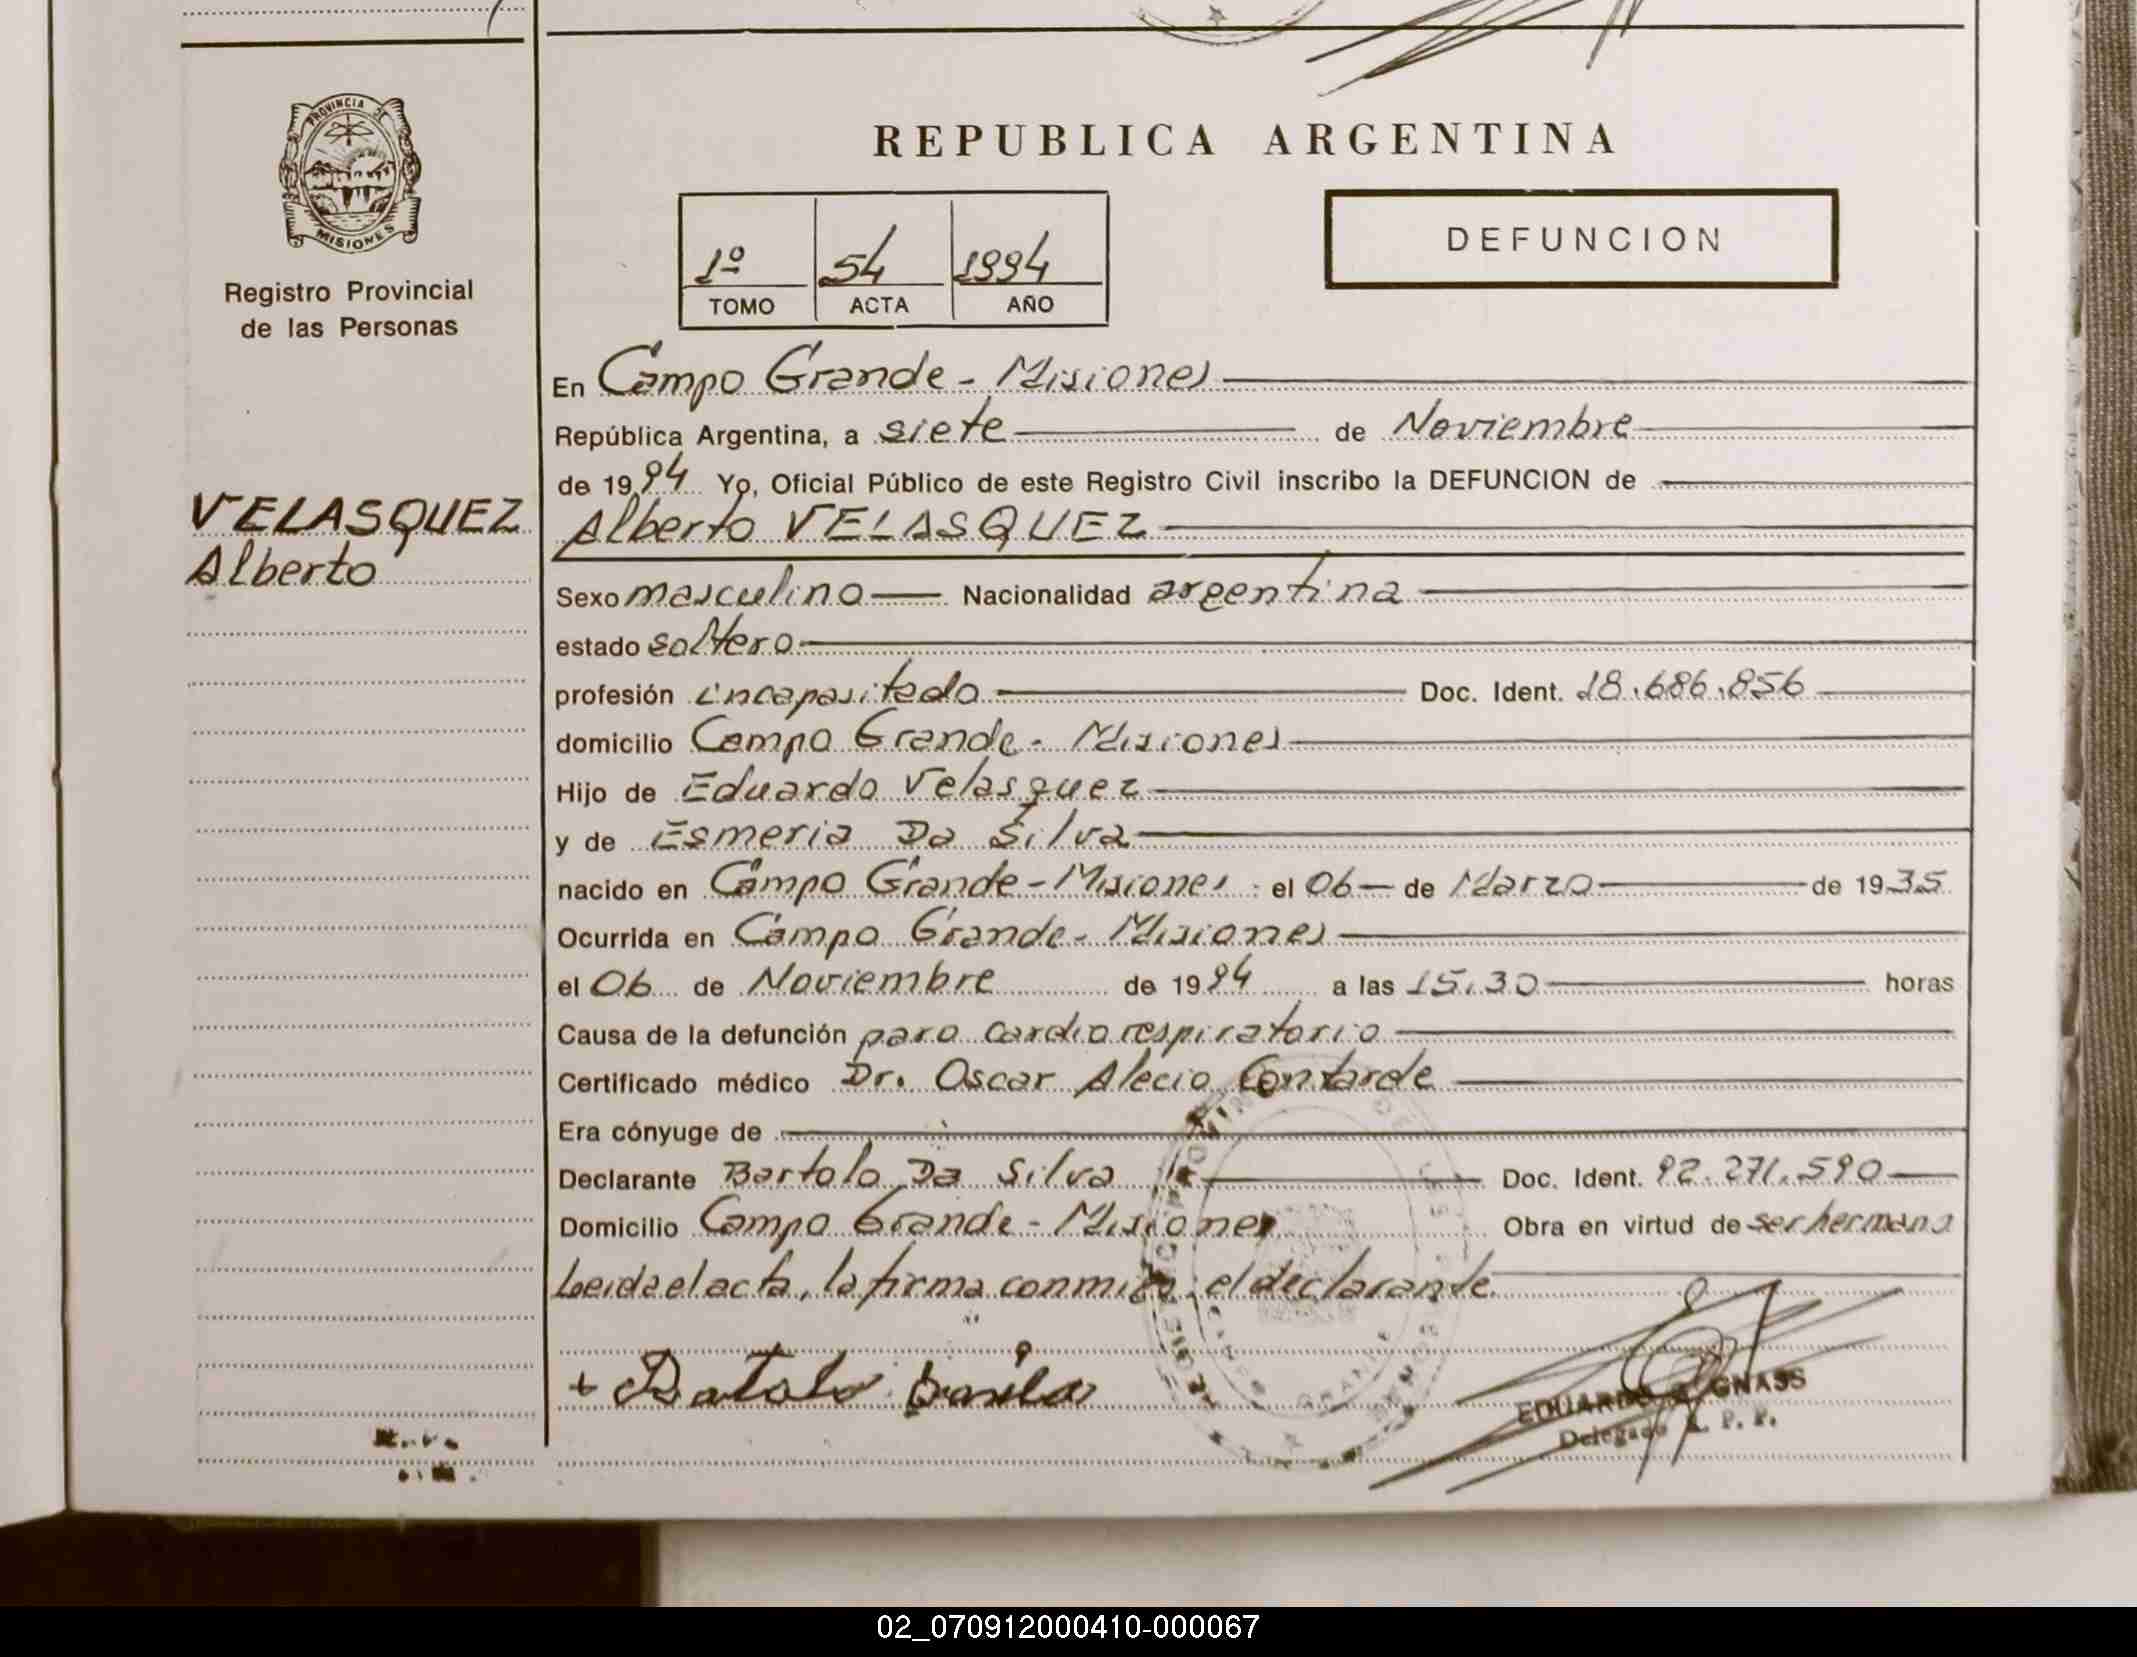 PROVINCIA DE
MISIONES
Registro Provincial
de las Personas
VELASQUEZ
Alberto
REPUBLICA ARGENTINA
1º 54 1994
TOMO ACTA AÑO
DEFUNCION
En Campo Grande - Misiones
República Argentina, a siete de Noviembre
de 1994 Yo, Oficial Público de este Registro Civil inscribo la DEFUNCION de
Alberto VELASQUEZ
Sexo masculino Nacionalidad argentina
estado soltero
profesión incapasitado Doc. Ident. 18.686.856
domicilio Campo Grande - Misiones
Hijo de Eduardo Velasquez
y de Esmeria Da Silva
nacido en Campo Grande - Misiones el 06 de Marzo de 1935
Ocurrida en Campo Grande - Misiones
el 06 de Noviembre de 1994 a las 15.30 horas
Causa de la defunción paro cardiorespiratorio
Certificado médico Dr. Oscar Alecio Contarde
Era cónyuge de
Declarante Bartolo Da Silva Doc. Ident. 92.271.590
Domicilio Campo Grande - Misiones Obra en virtud de ser hermano
Leida el acta, la firma conmigo el declarante.
EDUARDO GNASS
Delegado R. P. P.
CAMPO GRANDE
02_070912000410-000067